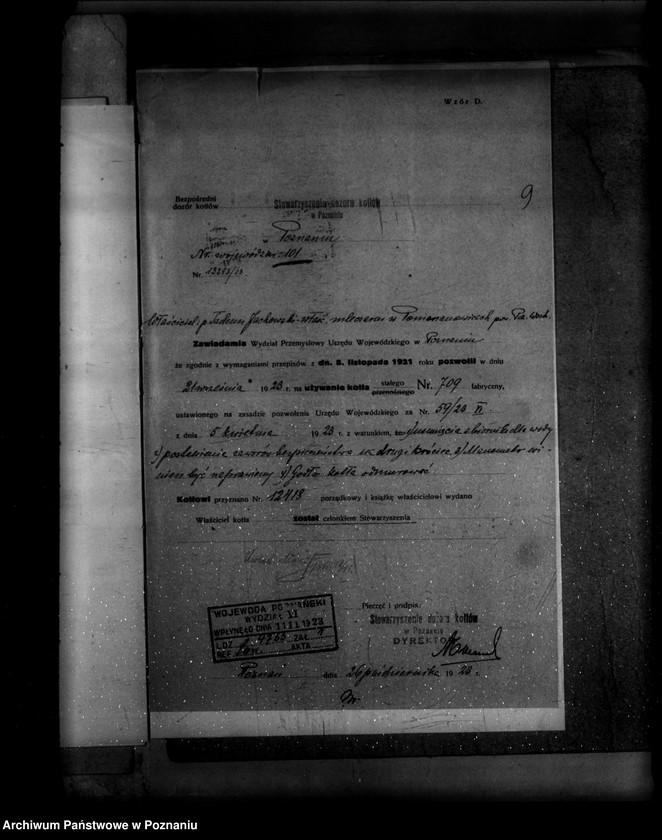 Wzór D.
9
Bezpośredni
dozór kotłów
Stowarzyszenie dozoru kotłów
w Poznaniu
w Poznaniu
Nr. wojewódzki 101
Nr. 13213/23
Właściciel: p. Tadeusz Jackowski właśc. mleczarni w Pomarzanowicach pow. Poz. Wsch.
Zawiadamia Wydział Przemysłowy Urzędu Wojewódzkiego w Poznaniu
że zgodnie z wymaganiami przepisów z dn. 8. listopada 1921 roku pozwolił w dniu
21 września 1923 r. na używanie kotła stałego przenośnego Nr. 709 fabryczny,
ustawionego na zasadzie pozwolenia Urzędu Wojewódzkiego za Nr. 59/23 VI.
z dnia 5 kwietnia 1923 r. z warunkiem, że: usunięcia zbiornika dla wody
zaworu bezpieczeństwa na drugi króciec 3) Manometr wi-
nien być naprawiony 4) Godło kotła odmurować
Kotłowi przyznano Nr. 12418 porządkowy i książkę właścicielowi wydano
Właściciel kotła został członkiem Stowarzyszenia
WOJEWODA POZNAŃSKI
WYDZIAŁ VI
WPŁYNĘŁO DNIA 11 11 1923
L. DZ. 9763 ZAŁ. 1
REF. AKTA
Pieczęć i podpis:
Stowarzyszenie dozoru kotłów
w Poznaniu
DYREKTOR
Poznań dnia 26 października 1923 r.
Archiwum Państwowe w Poznaniu